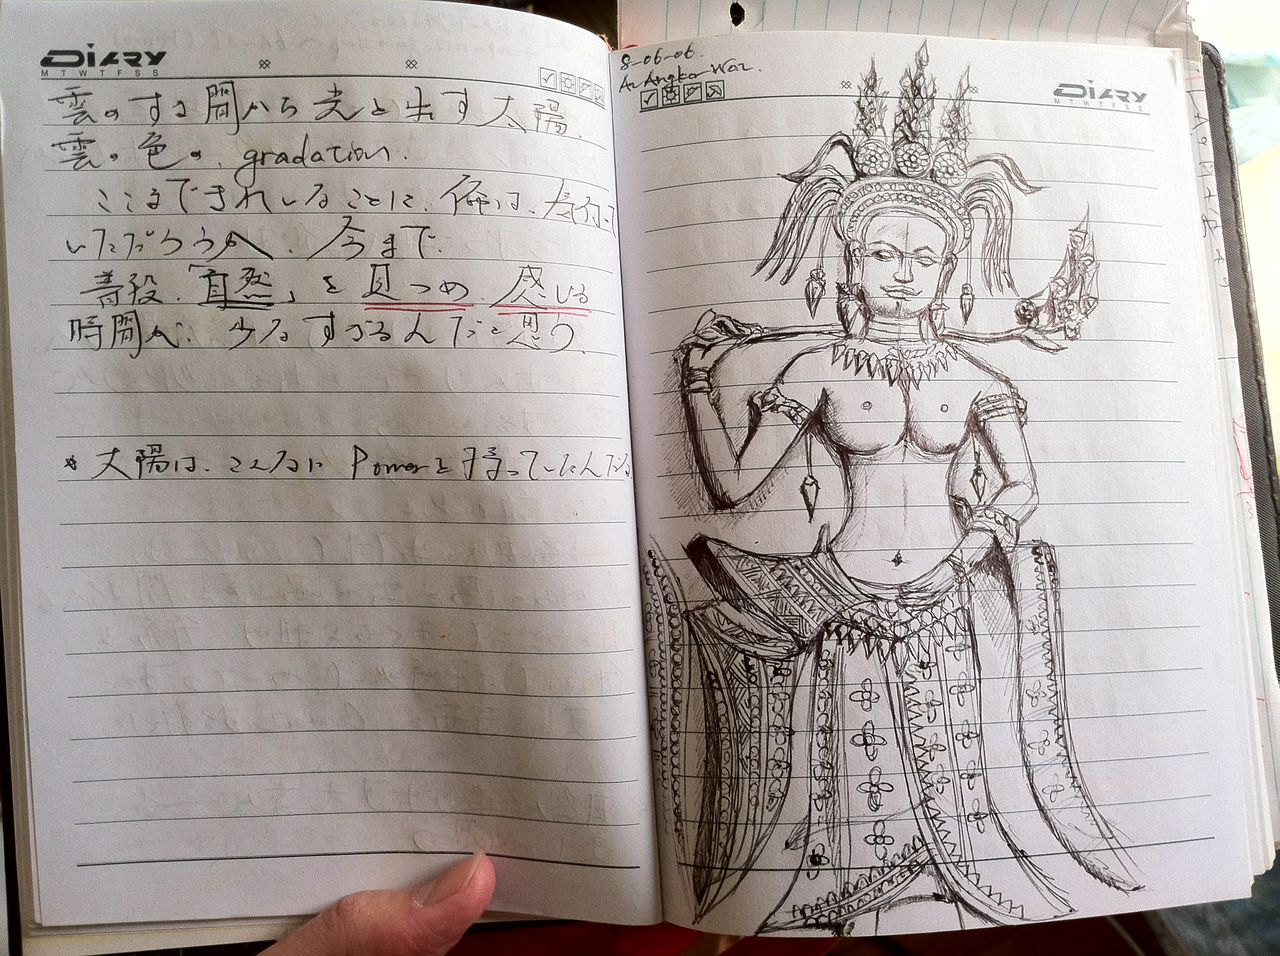 DIARY
M T W T F S S
雲のすき間から光を出す太陽、
雲の色の gradation.
ここまできれいなことに、俺は、気付いて
いただろうか、今まで。
普段、「自然」を見つめ、感じる
時間が、少なすぎるんだと思う。
* 太陽は、こんなに Powerを持っていたんだな
8-06-06.
At Angkor Wat.
DIARY
M T W T F S S